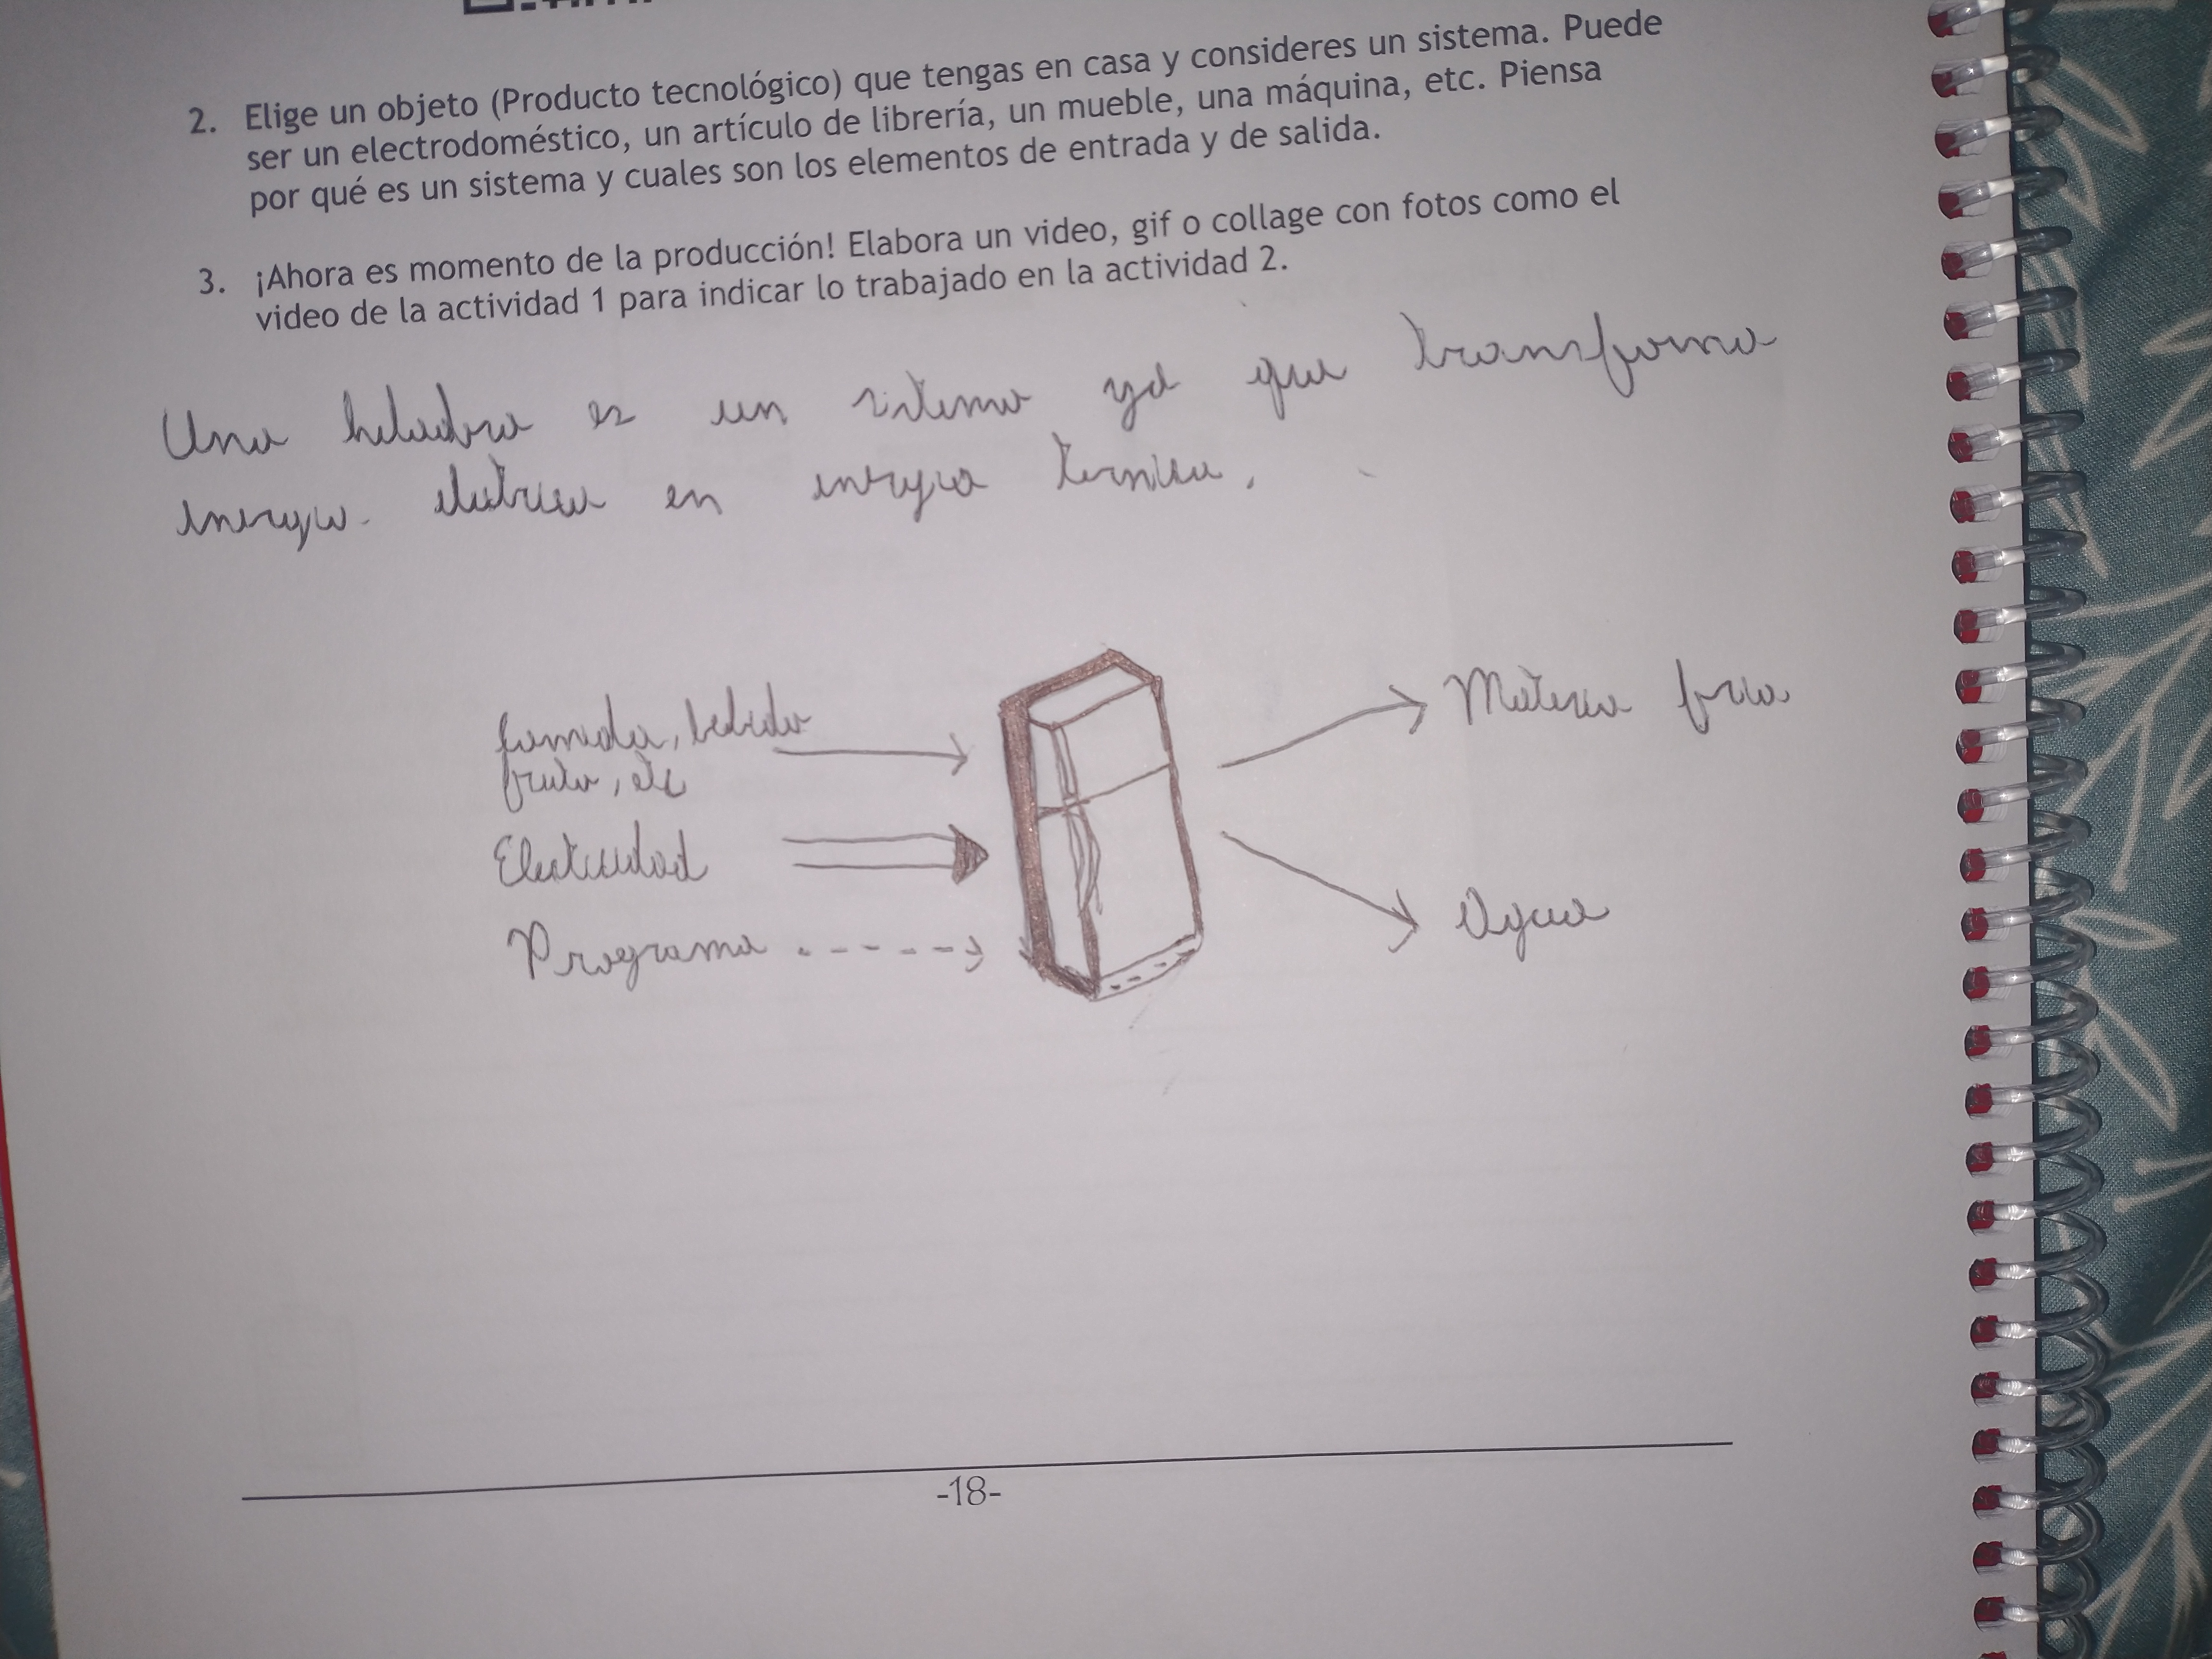 2. Elige un objeto (Producto tecnológico) que tengas en casa y consideres un sistema. Puede
ser un electrodoméstico, un artículo de librería, un mueble, una máquina, etc. Piensa
por qué es un sistema y cuales son los elementos de entrada y de salida.
3. ¡Ahora es momento de la producción! Elabora un video, gif o collage con fotos como el
video de la actividad 1 para indicar lo trabajado en la actividad 2.
Una heladera es un sistema ya que transforma
energia electrica en energia termica.
Comida, bebida
fruta, etc
Electricidad
Programa
Materia fria
Agua
-18-